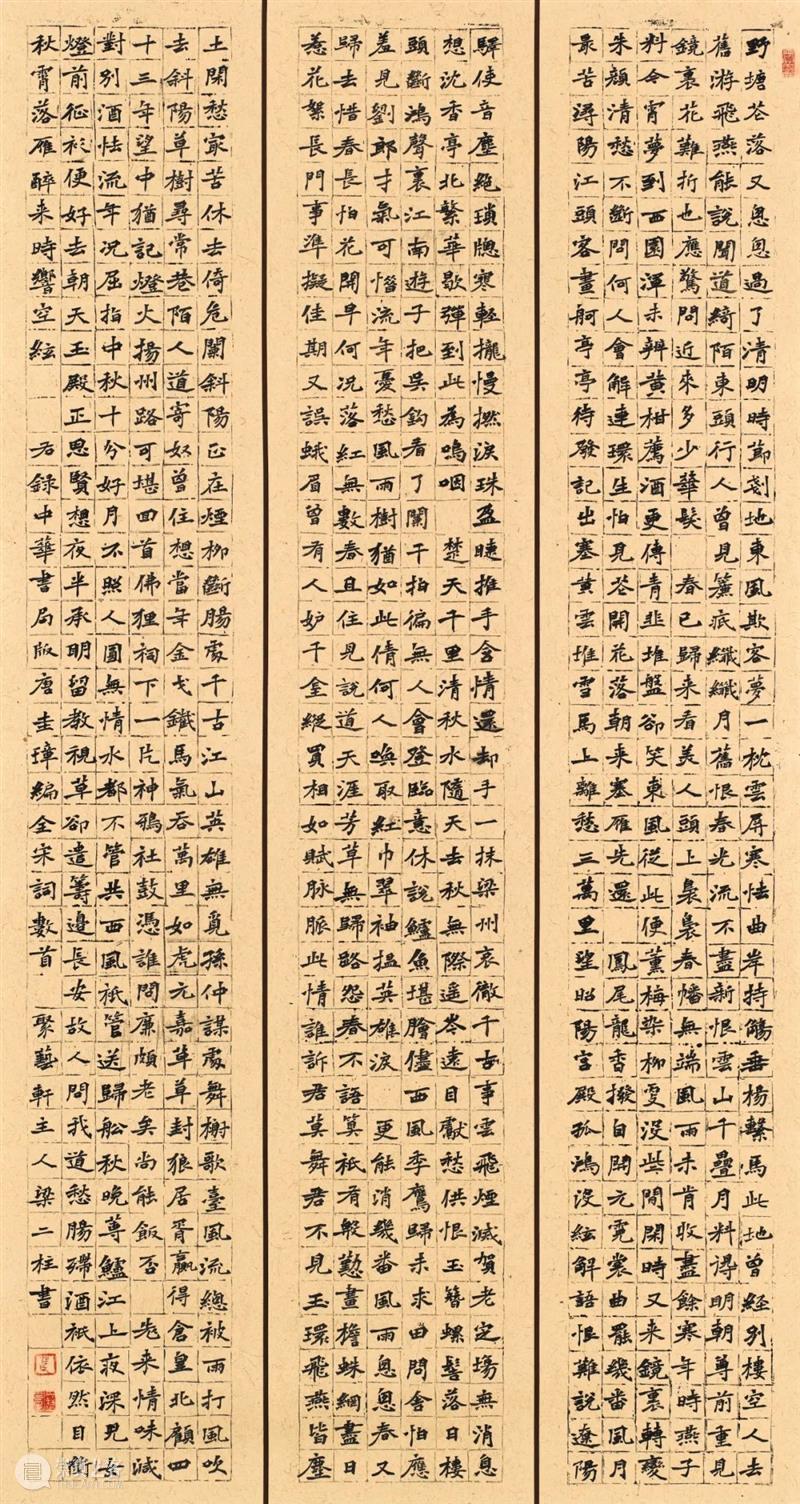 野塘花落又匆匆過了清明時節剗地東風欺客夢一枕雲屏寒怯曲岸持觴垂楊繫馬此地曾經別樓空人去
舊游飛燕能說聞道綺陌東頭行人曾見簾底纖纖月舊恨春光流不盡新恨雲山千疊月料得明朝尊前重見
鏡裏花難折也應驚問近來多少華髮 春已歸來看美人頭上裊裊春幡無端風雨未肯收盡餘寒年時燕子
料今宵夢到西園渾未辨黃柑薦酒更傳青韭堆盤卻笑東風從此便薰梅染柳更沒些閒閒時又來鏡裏轉變
朱顏清愁不斷問何人會解連環生怕見花開花落朝來塞雁先還 鳳尾龍香撥自開元霓裳曲罷幾番風月
最苦潯陽江頭客畫舸亭亭待發記出塞黃雲堆雪馬上離愁三萬里望昭陽宮殿孤鴻沒絃解語恨難說遼陽
驛使音塵絕瑣牕寒輕攏慢撚淚珠盈睫推手含情還却手一抹梁州哀徹千古事雲飛煙滅賀老定場無消息
想沈香亭北繁華歇彈到此為嗚咽 楚天千里清秋水隨天去秋無際遥岑遠目獻愁供恨玉簪螺髻落日樓
頭斷鴻聲裏江南遊子把吳鈎看了闌干拍徧無人會登臨意休說鱸魚堪膾儘西風季鷹歸未求田問舍怕應
羞見劉郎才氣可惜流年憂愁風雨樹猶如此倩何人喚取紅巾翠袖搵英雄淚 更能消幾番風雨匆匆春又
歸去惜春長怕花開早何況落紅無數春且住見說道天涯芳草無歸路怨春不語算祇有殷勤畫檐蛛網盡日
惹花絮長門事準擬佳期又誤蛾眉曾有人妒千金縱買相如賦脉脈此情誰訴君莫舞君不見玉環飛燕皆塵
土閑愁最苦休去倚危闌斜陽正在煙柳斷腸處千古江山英雄無覓孫仲謀處舞榭歌臺風流總被雨打風吹
去斜陽草樹尋常巷陌人道寄奴曾住想當年金戈鐵馬氣吞萬里如虎元嘉草草封狼居胥贏得倉皇北顧四
十三年望中猶記燈火揚州路可堪回首佛狸祠下一片神鴉社鼓憑誰問廉頗老矣尚能飯否 老來情味減
對別酒怯流年況屈指中秋十分好月不照人圓無情水都不管共西風祇管送歸船秋晚蓴鱸江上夜深兒女
燈前征衫便好去朝天玉殿正思賢想夜半承明留教視草卻遣籌邊長安故人問我道愁腸殢酒祇依然目斷
秋霄落雁醉來時響空絃 右錄中華書局版唐圭璋編全宋詞數首 聚藝軒主人梁二柱書